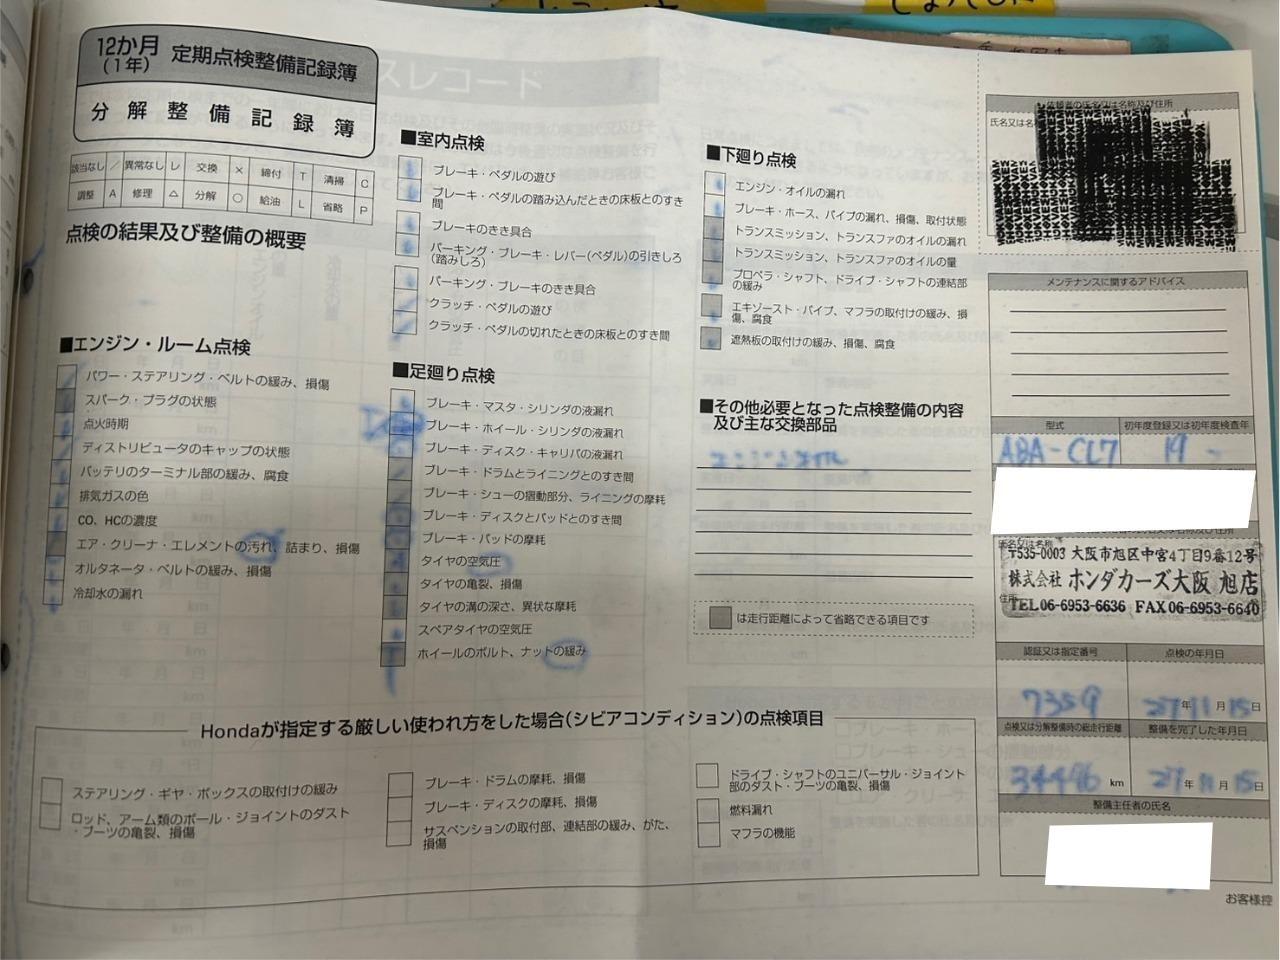 12か月
(1年)
定期点検整備記録簿
分解整備記録簿
該当なし ／ 異常なし レ 交換 × 締付 T 清掃 C
調整 A 修理 △ 分解 ○ 給油 L 省略 P
点検の結果及び整備の概要
■エンジン・ルーム点検
パワー・ステアリング・ベルトの緩み、損傷
スパーク・プラグの状態
点火時期
ディストリビュータのキャップの状態
バッテリのターミナル部の緩み、腐食
排気ガスの色
CO、HCの濃度
エア・クリーナ・エレメントの汚れ、詰まり、損傷
オルタネータ・ベルトの緩み、損傷
冷却水の漏れ
■室内点検
ブレーキ・ペダルの遊び
ブレーキ・ペダルの踏み込んだときの床板とのすき
間
ブレーキのきき具合
パーキング・ブレーキ・レバー(ペダル)の引きしろ
(踏みしろ)
パーキング・ブレーキのきき具合
クラッチ・ペダルの遊び
クラッチ・ペダルの切れたときの床板とのすき間
■足廻り点検
ブレーキ・マスタ・シリンダの液漏れ
ブレーキ・ホイール・シリンダの液漏れ
ブレーキ・ディスク・キャリパの液漏れ
ブレーキ・ドラムとライニングとのすき間
ブレーキ・シューの摺動部分、ライニングの摩耗
ブレーキ・ディスクとパッドとのすき間
ブレーキ・パッドの摩耗
タイヤの空気圧
タイヤの亀裂、損傷
タイヤの溝の深さ、異状な摩耗
スペアタイヤの空気圧
ホイールのボルト、ナットの緩み
■下廻り点検
エンジン・オイルの漏れ
ブレーキ・ホース、パイプの漏れ、損傷、取付状態
トランスミッション、トランスファのオイルの漏れ
トランスミッション、トランスファのオイルの量
プロペラ・シャフト、ドライブ・シャフトの連結部
の緩み
エキゾースト・パイプ、マフラの取付けの緩み、損
傷、腐食
遮熱板の取付けの緩み、損傷、腐食
■その他必要となった点検整備の内容
及び主な交換部品
エンジンオイル
は走行距離によって省略できる項目です
依頼者の氏名又は名称及び住所
氏名又は名
メンテナンスに関するアドバイス
型式
初年度登録又は初年度検査年
ABA-CL7
19 -
氏名又は名称
〒535-0003 大阪市旭区中宮4丁目9番12号
株式会社 ホンダカーズ大阪 旭店
住所
TEL 06-6953-6636 FAX 06-6953-6640
認証又は指定番号
点検の年月日
7359
27年11月15日
点検又は分解整備時の総走行距離
整備を完了した年月日
34496 km
27年11月15日
整備主任者の氏名
Hondaが指定する厳しい使われ方をした場合(シビアコンディション)の点検項目
ステアリング・ギヤ・ボックスの取付けの緩み
ロッド、アーム類のボール・ジョイントのダスト
・ブーツの亀裂、損傷
ブレーキ・ドラムの摩耗、損傷
ブレーキ・ディスクの摩耗、損傷
サスペンションの取付部、連結部の緩み、がた、
損傷
ドライブ・シャフトのユニバーサル・ジョイント
部のダスト・ブーツの亀裂、損傷
燃料漏れ
マフラの機能
お客様控